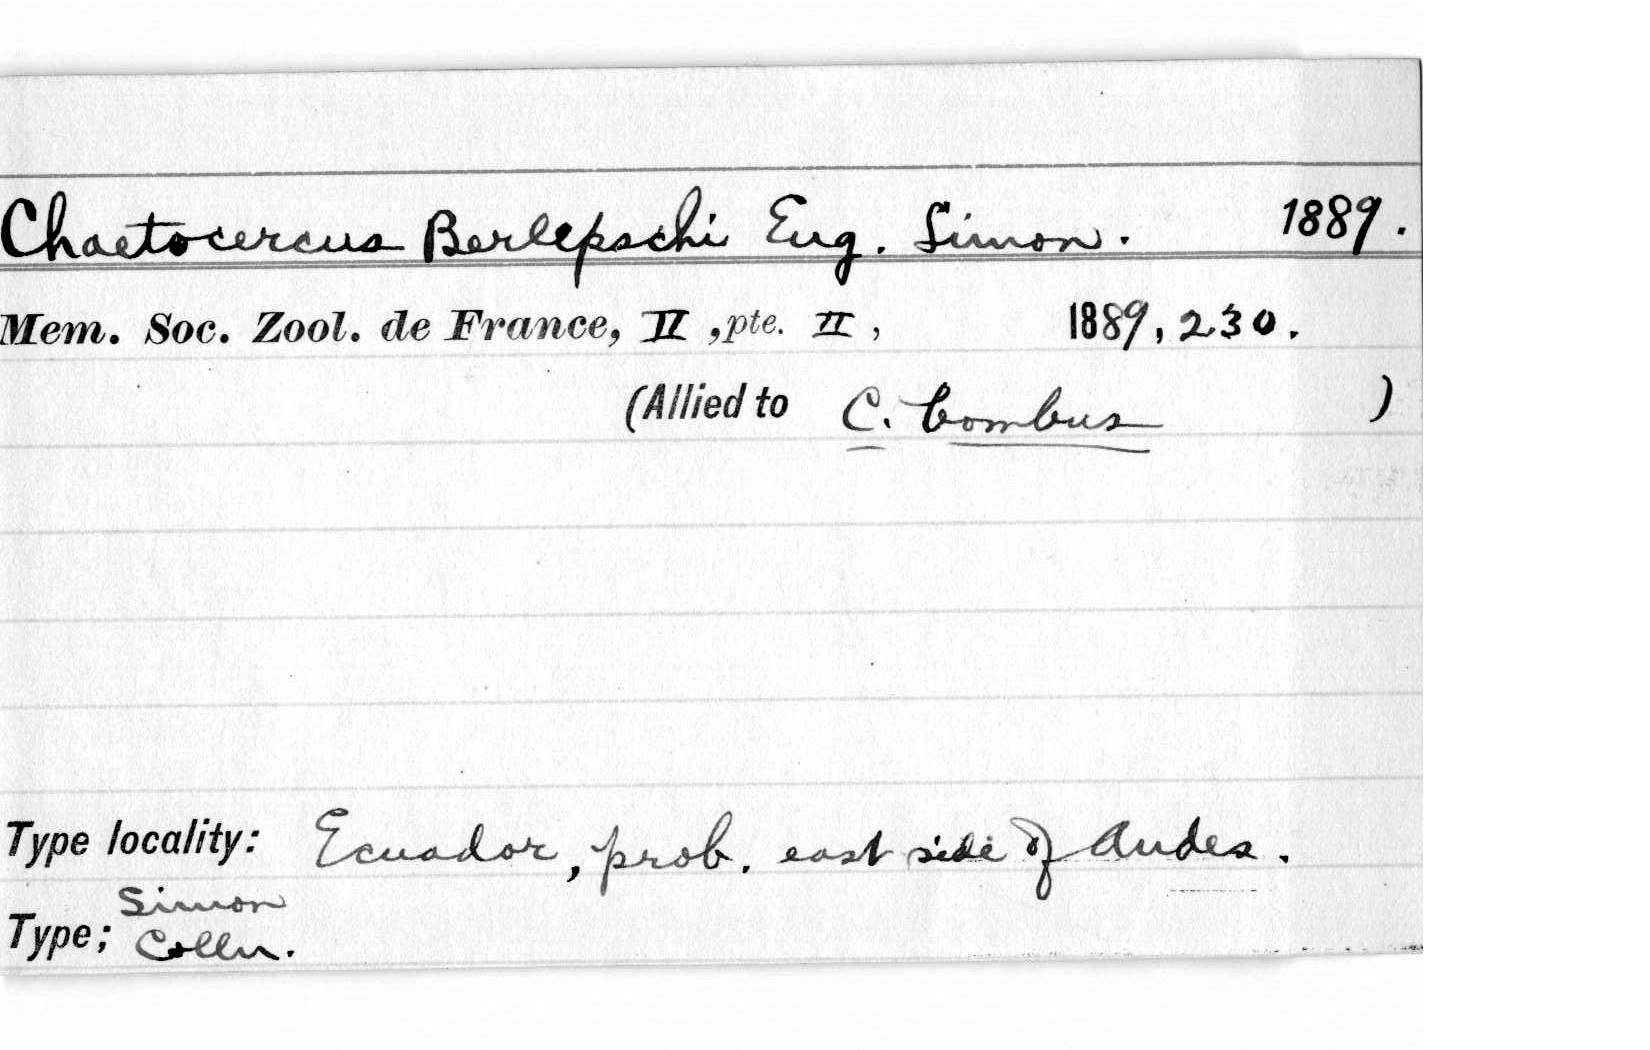 Chaetocercus Berlepschi Eug. Simon. 1889.
Mem. Soc. Zool. de France, II, pte. II, 1889, 230.
(Allied to C. bombus )
Type locality: Ecuador, prob. east side of Andes.
Type; Simon
Colln.